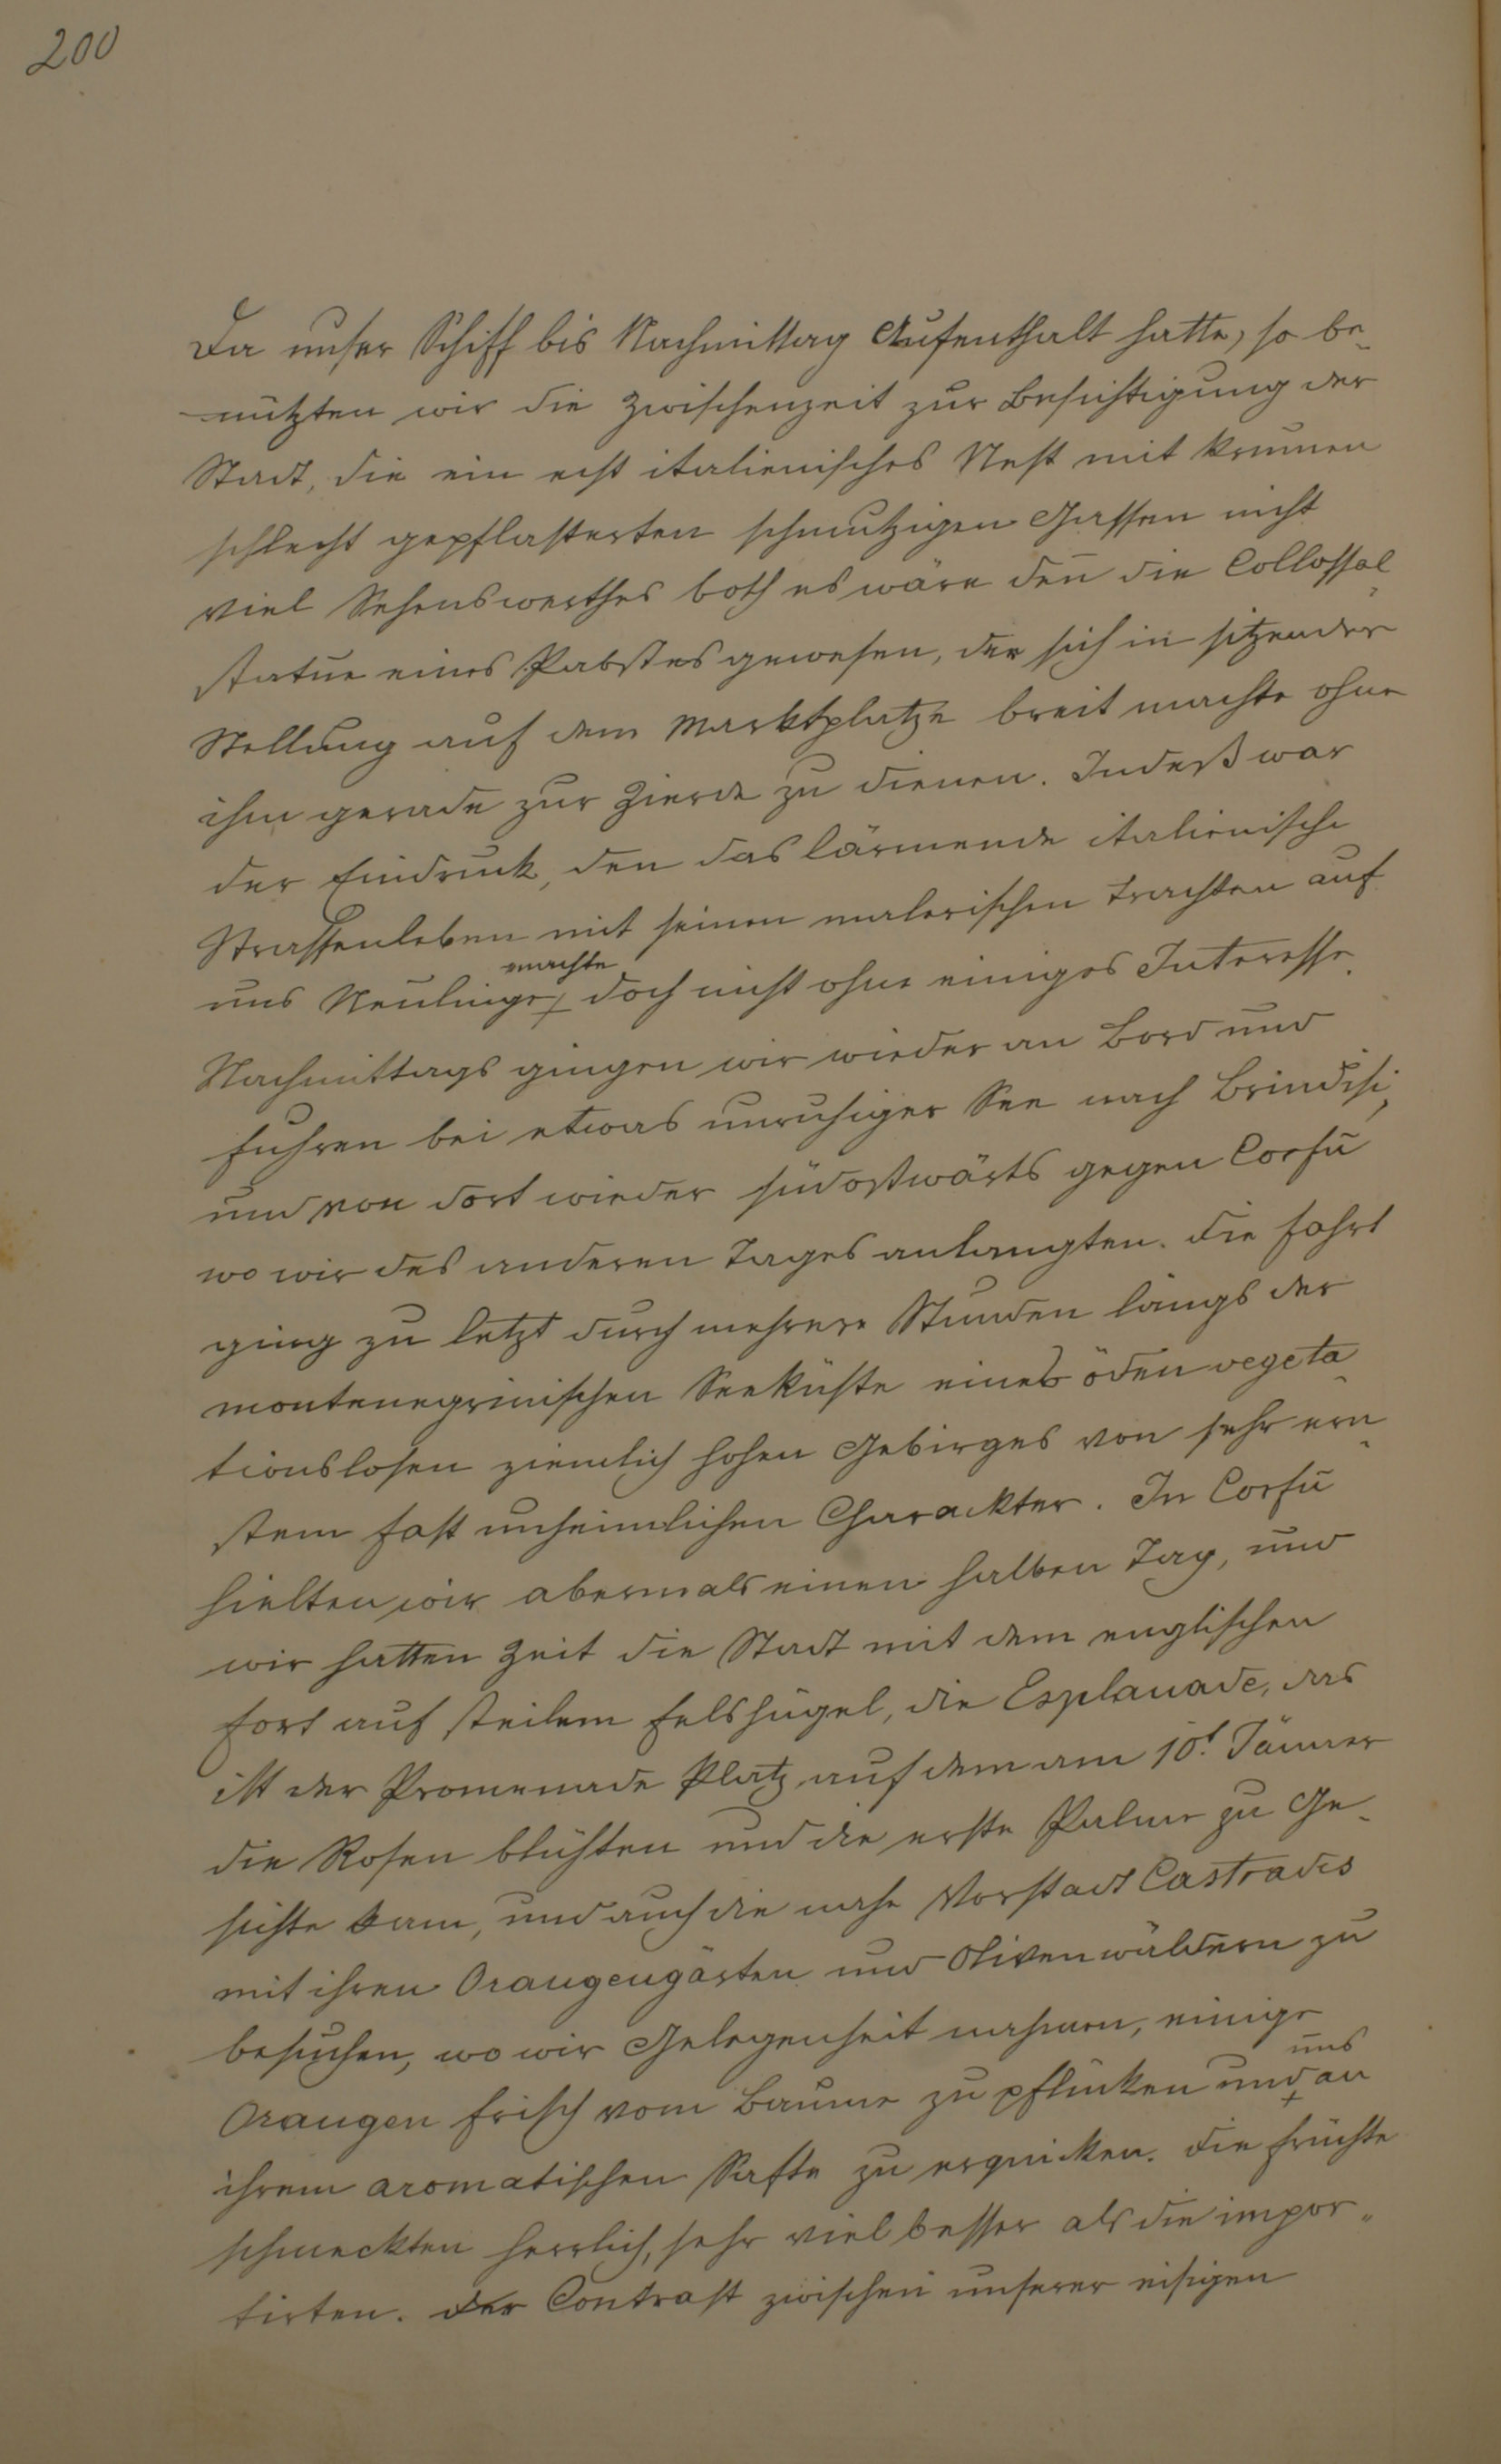 200
Da unser Schiff bis Nachmittag Aufenthalt hatte, so be-
nützten wir die Zwischenzeit zur Besichtigung der
Stadt, die ein echt italienisches Nest mit krummen
schlecht gepflasterten schmutzigen Gassen nicht
viel Sehenswerthes both es wäre deñ die Collossal-
statue eines Pabstes gewesen, der sich in sitzender
Stellung auf dem Marktplatze breit machte ohne
ihm gerade zur Zierde zu dienen. Indeß war
der Eindruck, den das lärmende italienische
Strassenleben mit seinen malerischen Trachten auf
machte
uns Neulinge, doch nicht ohne einiges Interesse.
Nachmittags gingen wir wieder an Bord und
fuhren bei etwas unruhiger See nach Brindisi,
und von dort wieder südostwärts gegen Corfu
wo wir des anderen Tages anlangten. Die Fahrt
ging zu letzt durch mehrere Stunden längs der
montenegrinischen Seeküste eines öden vegeta-
tionslosen ziemlich hohen Gebirges von sehr ern-
stem fast unheimlichen Charackter. In Corfu
hielten wir abermals einen halben Tag, und
wir hatten Zeit die Stadt mit dem englischen
Fort auf steilem Felshügel, die Esplanade, das
ist der Promenade Platz auf dem am 10t Jänner
die Rosen blühten und die erste Palme zu Ge-
sichte kam, und auch die nahe Vorstadt Castrades
mit ihren Orangengärten und Olivenwäldern zu
besuchen, wo wir Gelegenheit nahmen, einige
uns
Orangen frisch vom Baume zu pflücken und an
ihrem aromatischen Safte zu erquicken. Die Früchte
schmeckten herrlich, sehr viel besser als die impor-
tirten. Der Contrast zwischen unserer eisigen